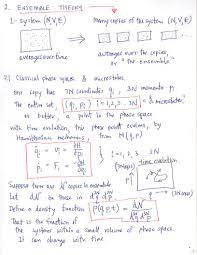 2. ENSEMBLE THEORY
1- system (N,V,E) many copies of the system (N,V,E)
averages over time averages over the copies,
or "the ensemble"
2.1 Classical phase space & microstates
one copy has 3N coordinates qi, 3N momenta pi
The entire set, (qi, pi) i=1,2,3...3N = a "microstate"
or better, a point in the phase space
with time evolution, this phase point evolves, by
Hamiltonian mechanics, from H(q,p)
q̇i = vi = ∂H/∂pi
ṗi = Fi = -∂H/∂qi
i = 1,2,...3N
time evolution
(3N axes)
p
q → (3N axes)
Suppose there are N copies in ensemble
Let dN be those in d³ᴺq d³ᴺp
Define a density function ρ(q,p,t) = dN / d³ᴺq d³ᴺp
That is the fraction of
the systems within a small volume of phase space
It can change with time